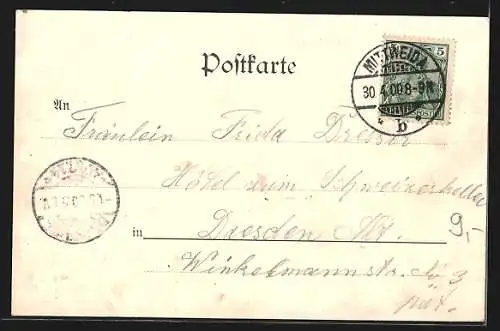 Postkarte
5
MITTWEIDA
30 4.00 8-9N
b
An
Fräulein Frida Dresser
Hôtel zum Schweizerkeller
9,-
in Dresden Alt.
Winkelmannstr. No 3